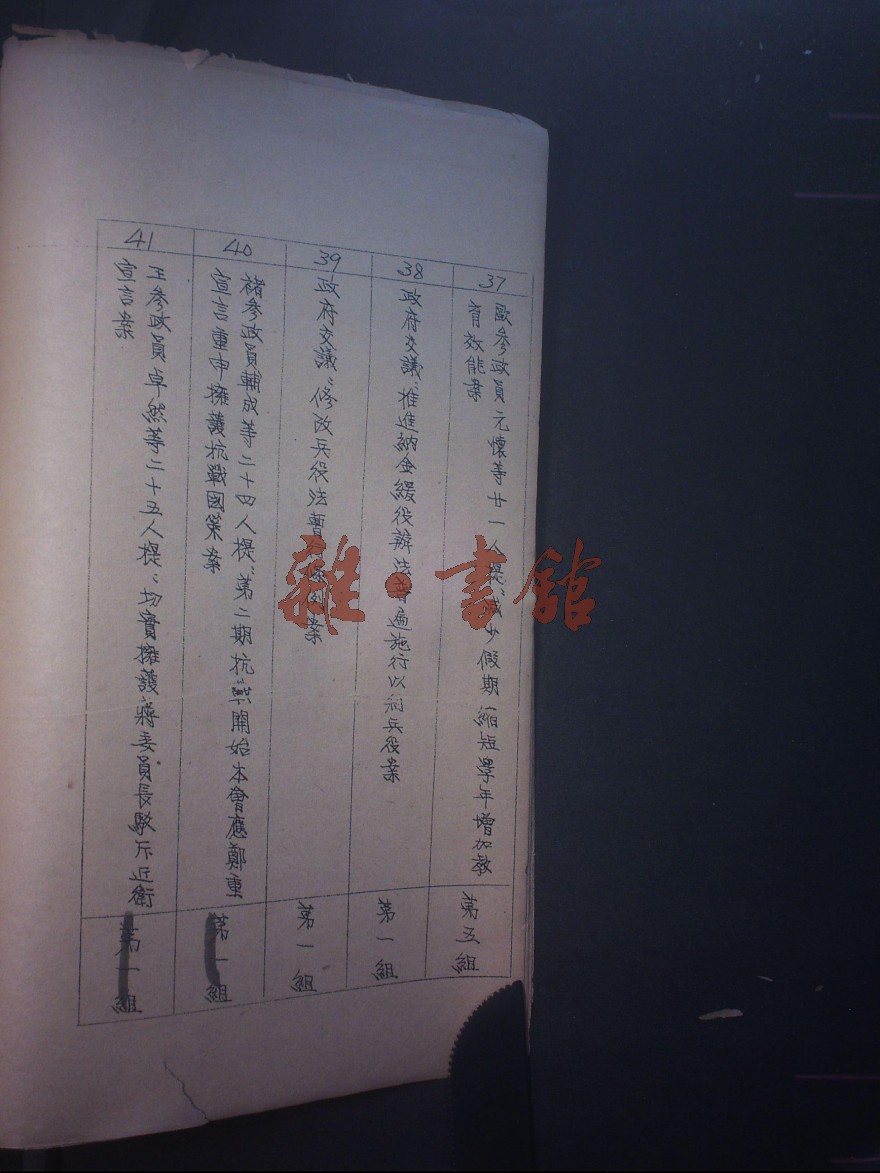 37
歐參政員元懷等廿一人提：減少假期縮短學年增加教
育效能案
第五組
38
政府交議：推進納金緩役辦法普遍施行以利兵役案
第一組
39
政府交議：修改兵役法暫行條例案
第一組
40
褚參政員輔成等二十四人提：第二期抗戰開始本會應鄭重
宣言重申擁護抗戰國策案
第一組
41
王參政員卓然等二十五人提：切實擁護蔣委員長駁斥近衛
宣言案
第一組
雜·書館